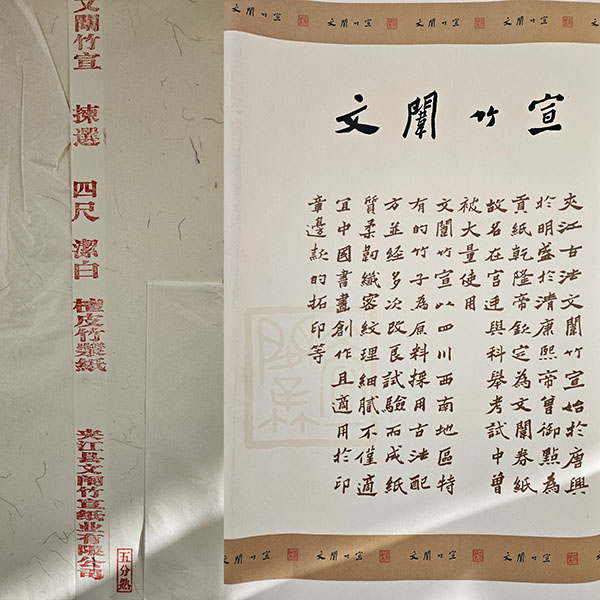 文闈竹宣 揀選 四尺 潔白 檀皮竹漿紙 夹江县文闱竹宣纸业有限公司
五分熟
文闈竹宣 文闈竹宣 文闈竹宣
文闈竹宣
夾江古法文闈竹宣始於唐興
於明盛於清康熙帝曾御點為
貢紙乾隆帝欽定為文闈卷紙
故名在宮廷與科舉考試中曾
被大量使用
文闈竹宣以四川西南地區特
有的竹子為原料採用古法配
方並經多次改良試驗而成紙
質柔韌纖密紋理細膩不僅適
宜中國書畫創作且適用於印
章邊款的拓印等
文闈竹宣 文闈竹宣 文闈竹宣